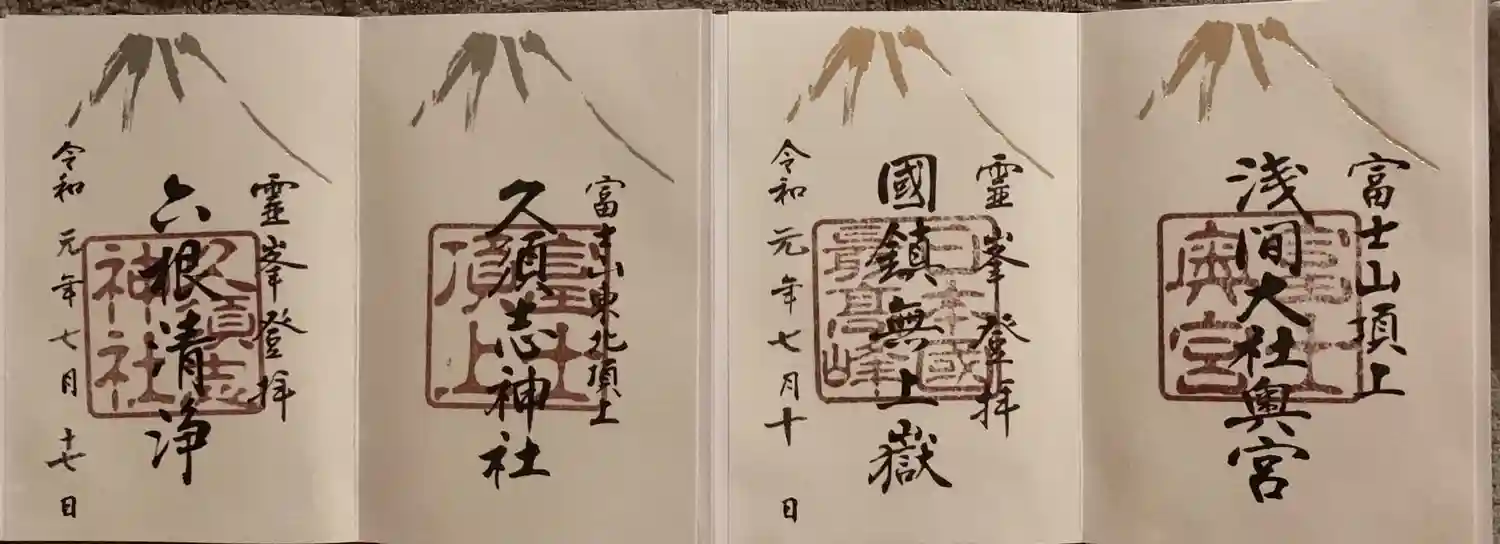 富士山頂上
浅間大社奥宮
富士
奥宮
靈峯登拝
國鎮無上嶽
日本國
最高峰
令和元年七月十日
富士山東北頂上
久須志神社
富士
頂上
靈峯登拝
六根清浄
久須志
神社
令和元年七月十七日